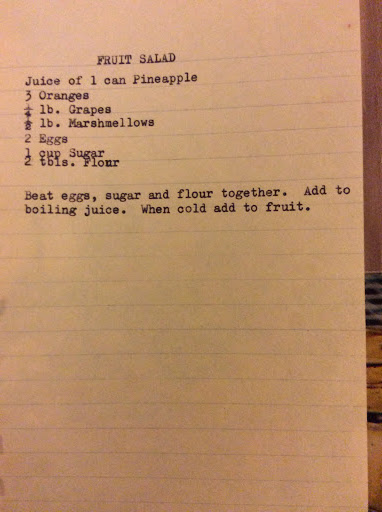 FRUIT SALAD
Juice of 1 can Pineapple
3 Oranges
lb. Grapes
lb. Marshmellows
2 Eggs
1 cup Sugar
2 tbls. Flour
Beat eggs, sugar and flour together. Add to
boiling juice. When cold add to fruit.